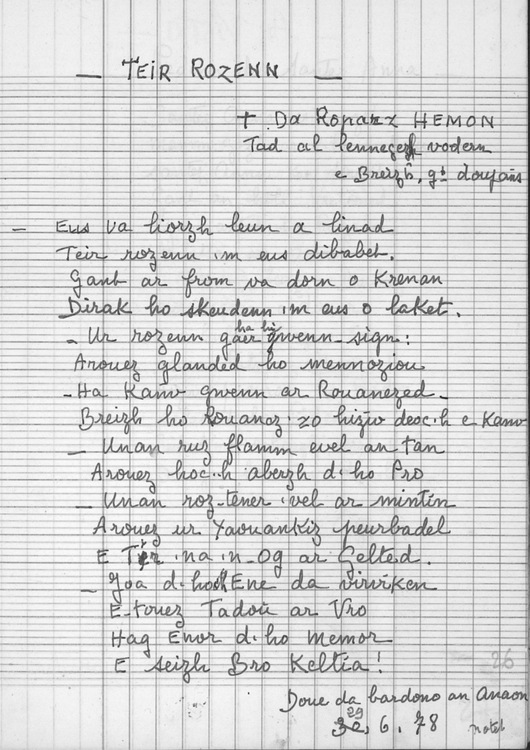 — TEIR ROZENN —
+ Da Roparz HEMON
Tad al lennegezh vodern
e Breizh, gt doujañs
— Eus va liorzh leun a linad
Teir rozenn 'm eus dibabet.
Gant ar from va dorn o Krenan
Dirak ho skeudenn 'm eus o laket.
- Ur rozenn gaer ha hi gwenn-sign:
Arouez glanded ho mennoziou
- Ha Kañv gwenn ar Rouanezed -
Breizh ho Rouanez 'zo hiziv deoc'h e Kañv
— Unan ruz flamm evel an tan
Arouez hoc'h aberzh d'ho Pro
— Unan roz-tener 'vel ar mintin
Arouez ur Yaouankiz peurbadel
E Tír 'na 'n-Og ar Gelted.
— Joa d'ho Ene da virviken
E-touez Tadoù ar Vro
Hag Enor d'ho memor
E seizh Bro Keltia!
Doue da bardono an Anaon
29
30. 6. 78
26